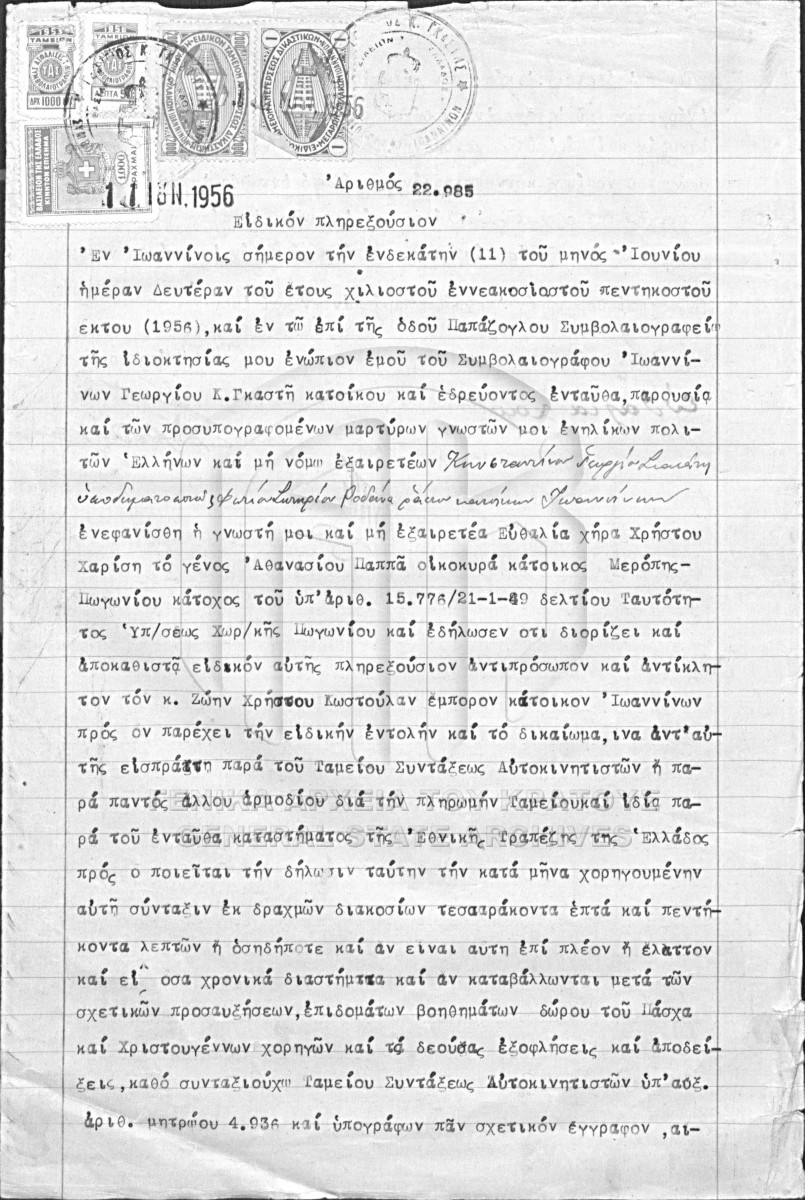 1951
ΤΑΜΕΙΟΝ
ΔΡΧ 1000
ΒΑΣΙΛΕΙΟΝ ΤΗΣ ΕΛΛΑΔΟΣ
ΚΙΝΗΤΟΝ ΕΠΙΣΗΜΑ
1000
ΔΡΑΧΜΑΙ
1956
ΙΟΥΝ. 1956
Ἀριθμός 22.985
Εἰδικόν πληρεξούσιον
Ἐν Ἰωαννίνοις σήμερον τήν ἑνδεκάτην (11) τοῦ μηνός Ἰουνίου
ἡμέραν Δευτέραν τοῦ ἔτους χιλιοστοῦ ἐννεακοσιαστοῦ πεντηκοστοῦ
εκτου (1956),καί ἐν τῶ ἐπί τῆς ὁδοῦ Παπάζογλου Συμβολαιογραφείω
τῆς ἰδιοκτησίας μου ἐνώπιον ἐμοῦ τοῦ Συμβολαιογράφου Ἰωαννί-
νων Γεωργίου Κ.Γκαστῆ κατοίκου καί ἑδρεύοντος ἐνταῦθα,παρουσία
καί τῶν προσυπογραφομένων μαρτύρων γνωστῶν μοι ἐνηλίκων πολι-
τῶν Ἑλλήνων καί μή νόμω ἐξαιρετέων Κωνσταντίνου Γεωργίου
Φωτίου Σωτηρίου κατοίκων Ἰωαννίνων
ἐνεφανίσθη ἡ γνωστή μοι καί μή ἐξαιρετέα Εὐθαλία χήρα Χρήστου
Χαρίση τό γένος Ἀθανασίου Παππᾶ οἰκοκυρά κάτοικος Μερόπης-
Πωγωνίου κάτοχος τοῦ ὑπ'ἀριθ. 15.776/21-1-49 δελτίου Ταυτότη-
τος Ὑπ/σεως Χωρ/κῆς Πωγωνίου καί ἐδήλωσεν οτι διορίζει καί
ἀποκαθιστᾷ εἰδικόν αὐτῆς πληρεξούσιον ἀντιπρόσωπον καί ἀντίκλη-
τον τόν κ. Ζώην Χρήστου Κωστούλαν ἔμπορον κάτοικον Ἰωαννίνων
πρός ὀν παρέχει τήν εἰδικήν ἐντολήν καί τό δικαίωμα,ινα ἀντ'αὐ-
τῆς εἰσπράττη παρά τοῦ Ταμείου Συντάξεως Αὐτοκινητιστῶν ἤ πα-
ρά παντός ἄλλου ἁρμοδίου διά τήν πληρωμήν Ταμείουκαί ἰδία πα-
ρά τοῦ ἐνταῦθα καταστήματος τῆς Ἐθνικῆς Τραπέζης της Ἑλλάδος
πρός ο ποιεῖται τήν δήλωσιν ταύτην τήν κατά μῆνα χορηγουμένην
αὐτῆ σύνταξιν ἐκ δραχμῶν διακοσίων τεσααράκοντα ἑπτά καί πεντή-
κοντα λεπτῶν ἤ ὁσηδήποτε καί ἀν εἶναι αυτη ἐπί πλέον ἤ ἔλαττον
καί εἰς οσα χρονικά διαστήματα καί ἀν καταβάλλωνται μετά τῶν
σχετικῶν προσαυξήσεων,ἐπιδομάτων βοηθημάτων δώρου τοῦ Πάσχα
καί Χριστουγέννων χορηγῶν καί τά δεούσας ἐξοφλήσεις καί ἀποδεί-
ξεις,καθό συνταξιούχω Ταμείου Συντάξεως Αὐτοκινητιστῶν ὑπ'αὐξ.
ἀριθ. μητρώου 4.936 καί ὑπογράφων πᾶν σχετικόν ἔγγραφον ,αἰ-
ΓΕΝΙΚΑ ΑΡΧΕΙΑ ΤΟΥ ΚΡΑΤΟΥΣ
GENERAL STATE ARCHIVES